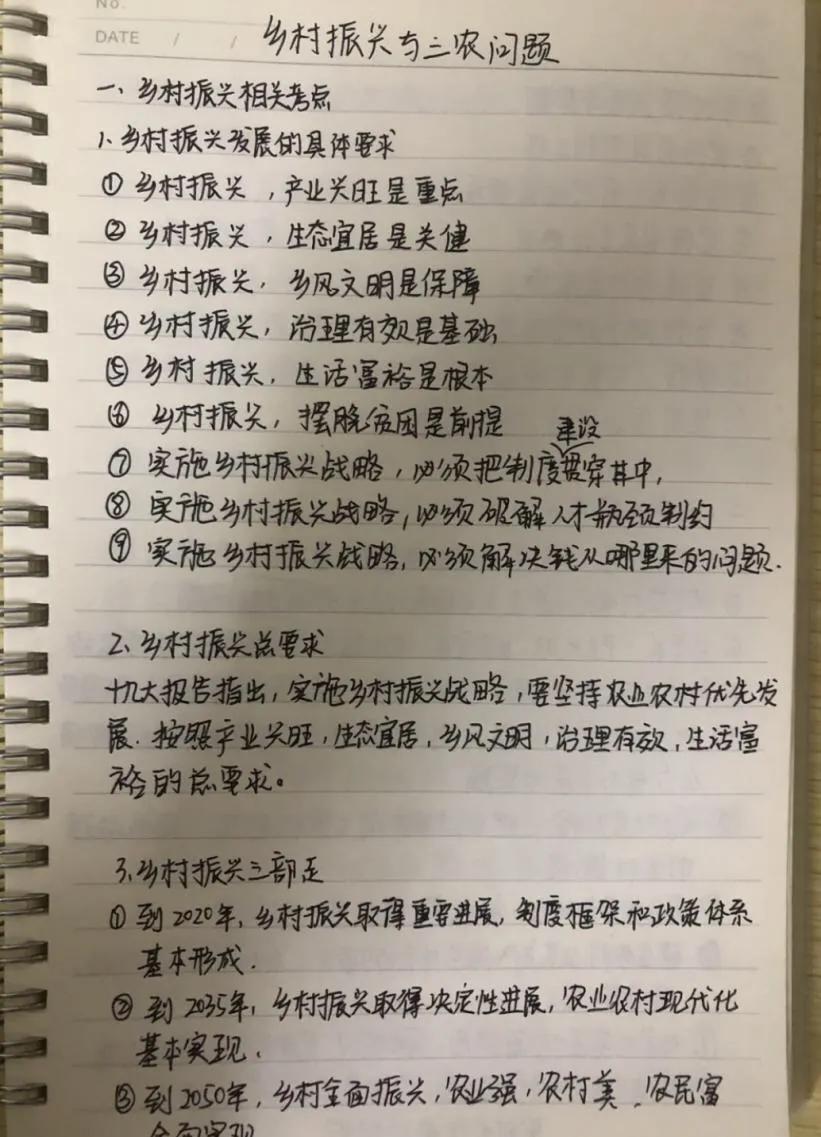 No.
DATE / /
乡村振兴与三农问题
一、乡村振兴相关考点
1、乡村振兴发展的具体要求
① 乡村振兴，产业兴旺是重点
② 乡村振兴，生态宜居是关健
③ 乡村振兴，乡风文明是保障
④ 乡村振兴，治理有效是基础
⑤ 乡村振兴，生活富裕是根本
⑥ 乡村振兴，摆脱贫困是前提
⑦ 实施乡村振兴战略，必须把制度建设贯穿其中，
⑧ 实施乡村振兴战略，必须破解人才瓶颈制约
⑨ 实施乡村振兴战略，必须解决钱从哪里来的问题.
2、乡村振兴总要求
十九大报告指出，实施乡村振兴战略，要坚持农业农村优先发
展.按照产业兴旺，生态宜居，乡风文明，治理有效，生活富
裕的总要求。
3、乡村振兴三部走
① 到2020年，乡村振兴取得重要进展，制度框架和政策体系
基本形成.
② 到2035年，乡村振兴取得决定性进展，农业农村现代化
基本实现.
③ 到2050年，乡村全面振兴，农业强，农村美、农民富
全面实现